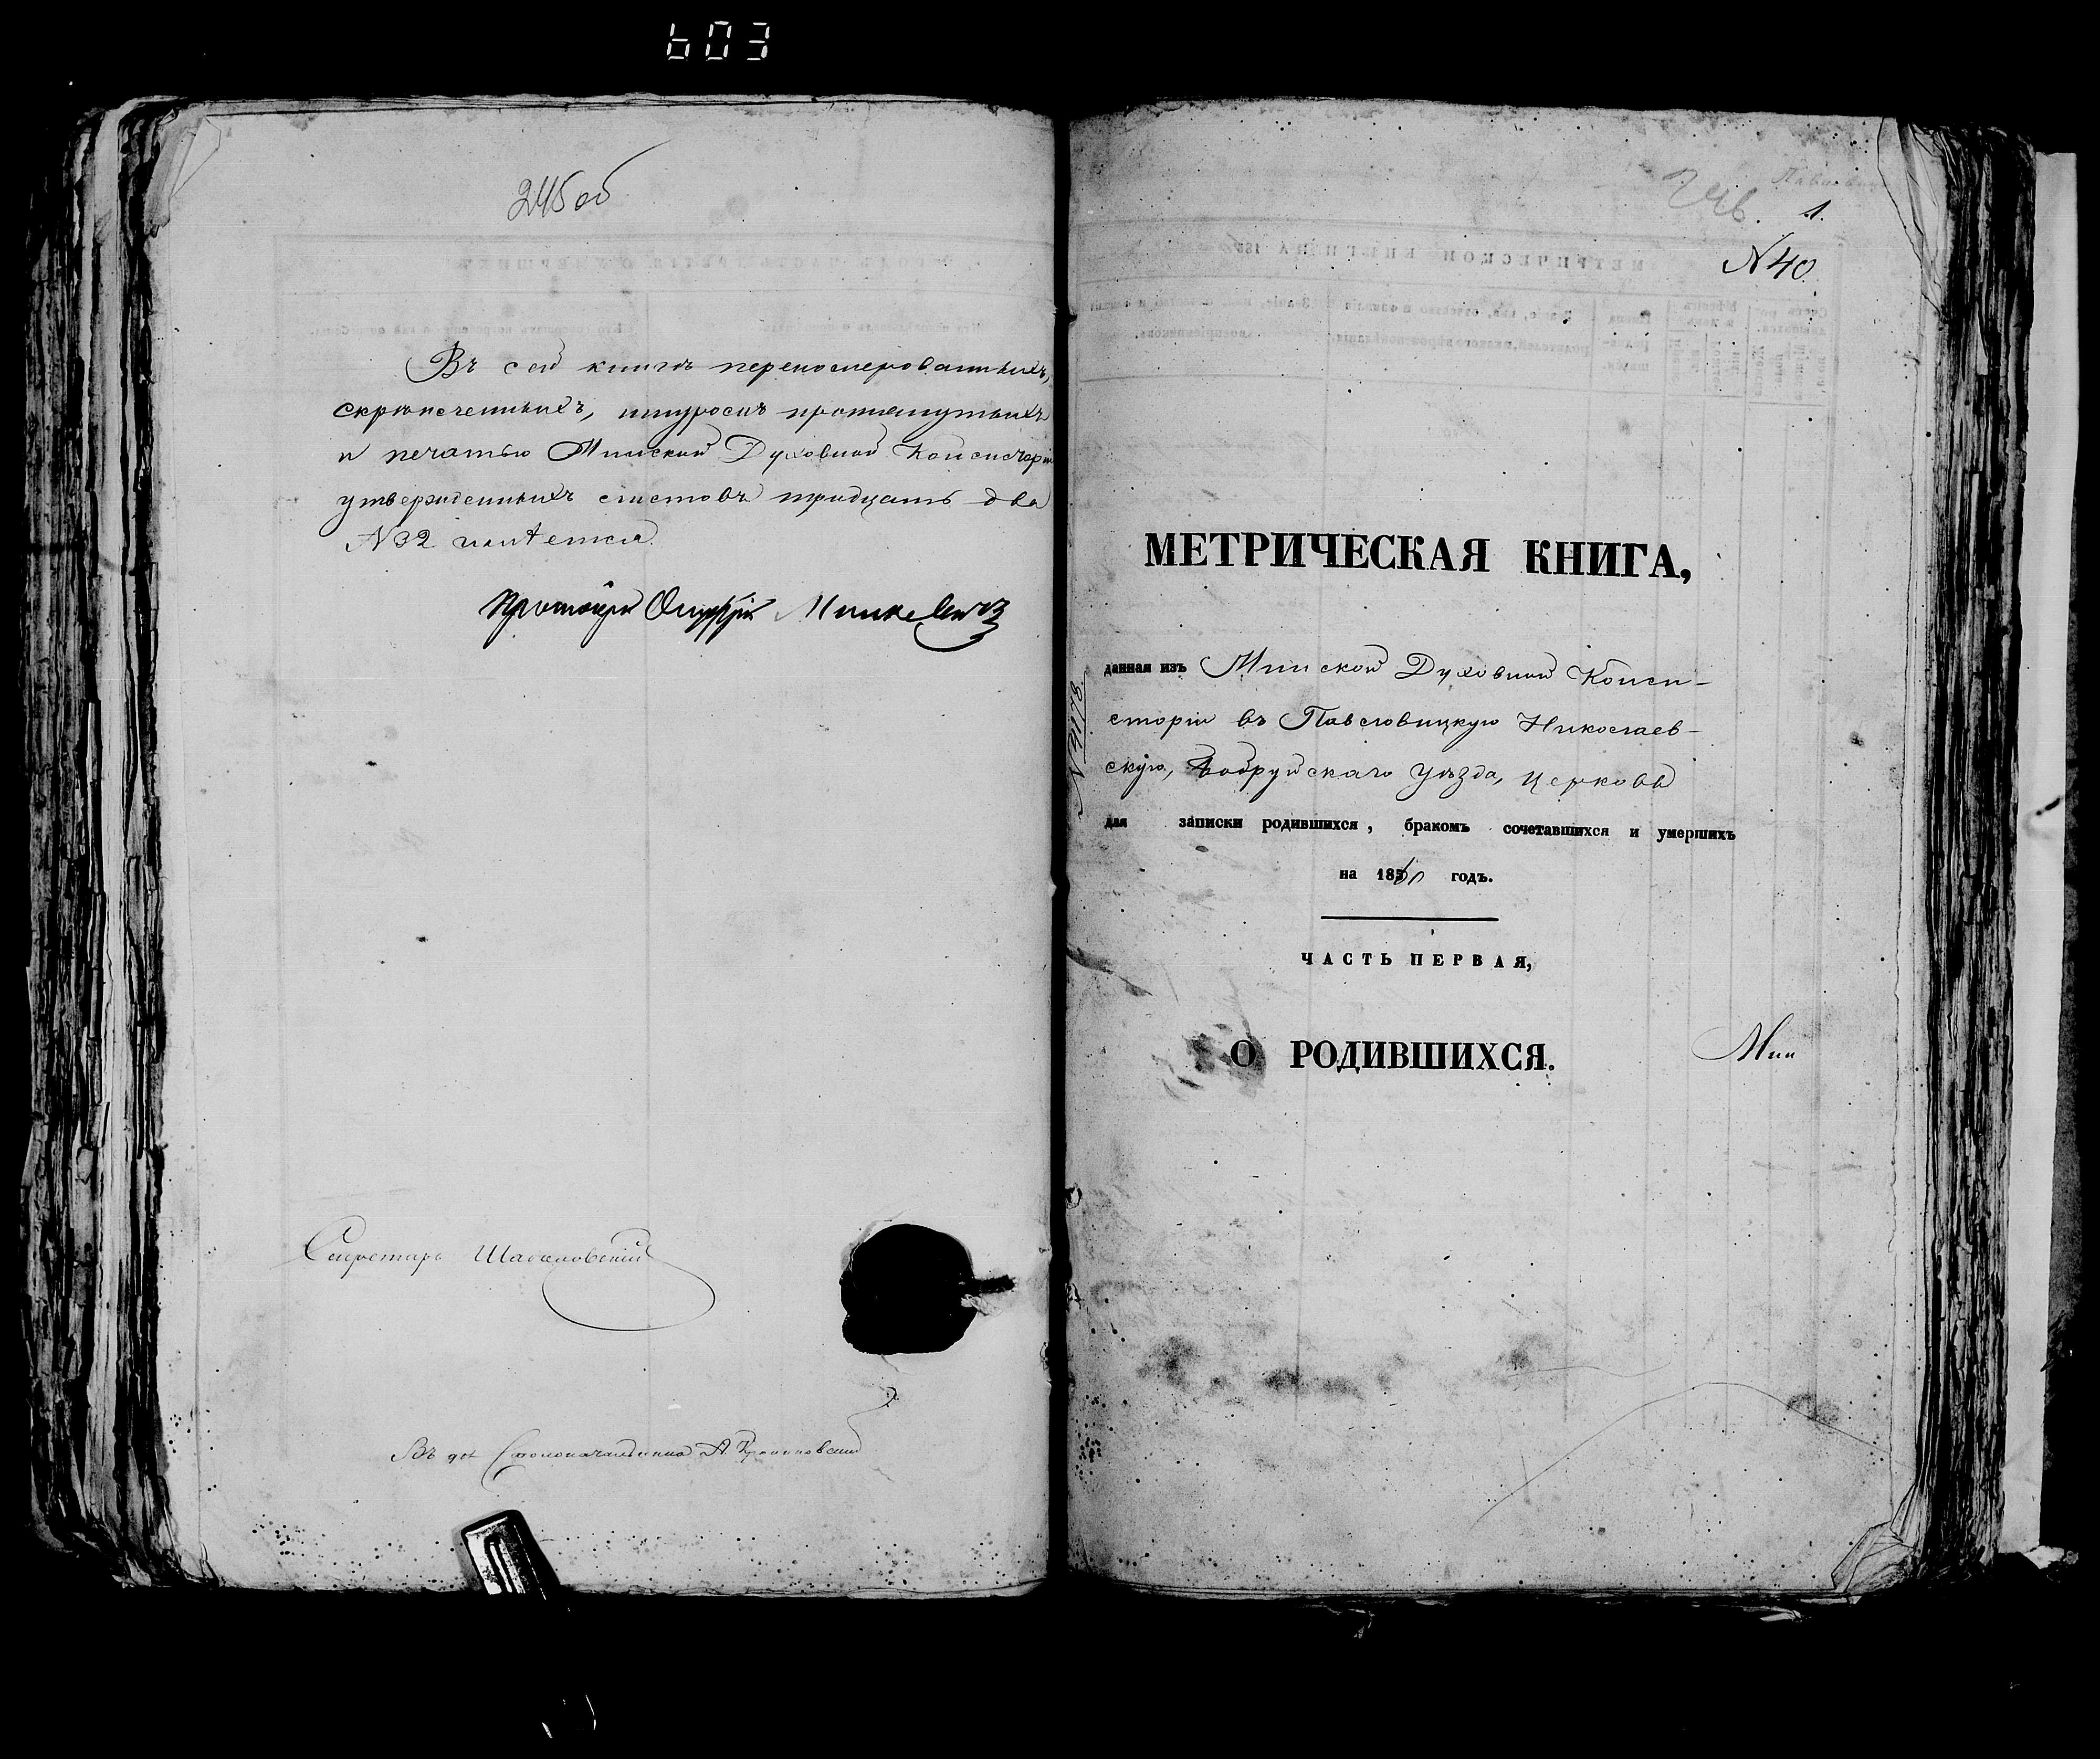 603
245 об
Въ сей книгѣ перенумерованныхъ,
скрѣпленныхъ, шнуромъ протянутыхъ
и печатью Минской Духовной Консисторіи
утвержденныхъ листовъ тридцать два
№ 32 имѣется.
Протоіерей
Секретарь
Въ Столоначальника А.
1.
№ 40
МЕТРИЧЕСКАЯ КНИГА,
данная изъ Минской Духовной Конси-
сторіи въ Павловицкую Николаев-
скую, Бобруйскаго уѣзда, церковь
для записки родившихся, бракомъ сочетавшихся и умершихъ
на годъ.
ЧАСТЬ ПЕРВАЯ,
О РОДИВШИХСЯ.
Мин